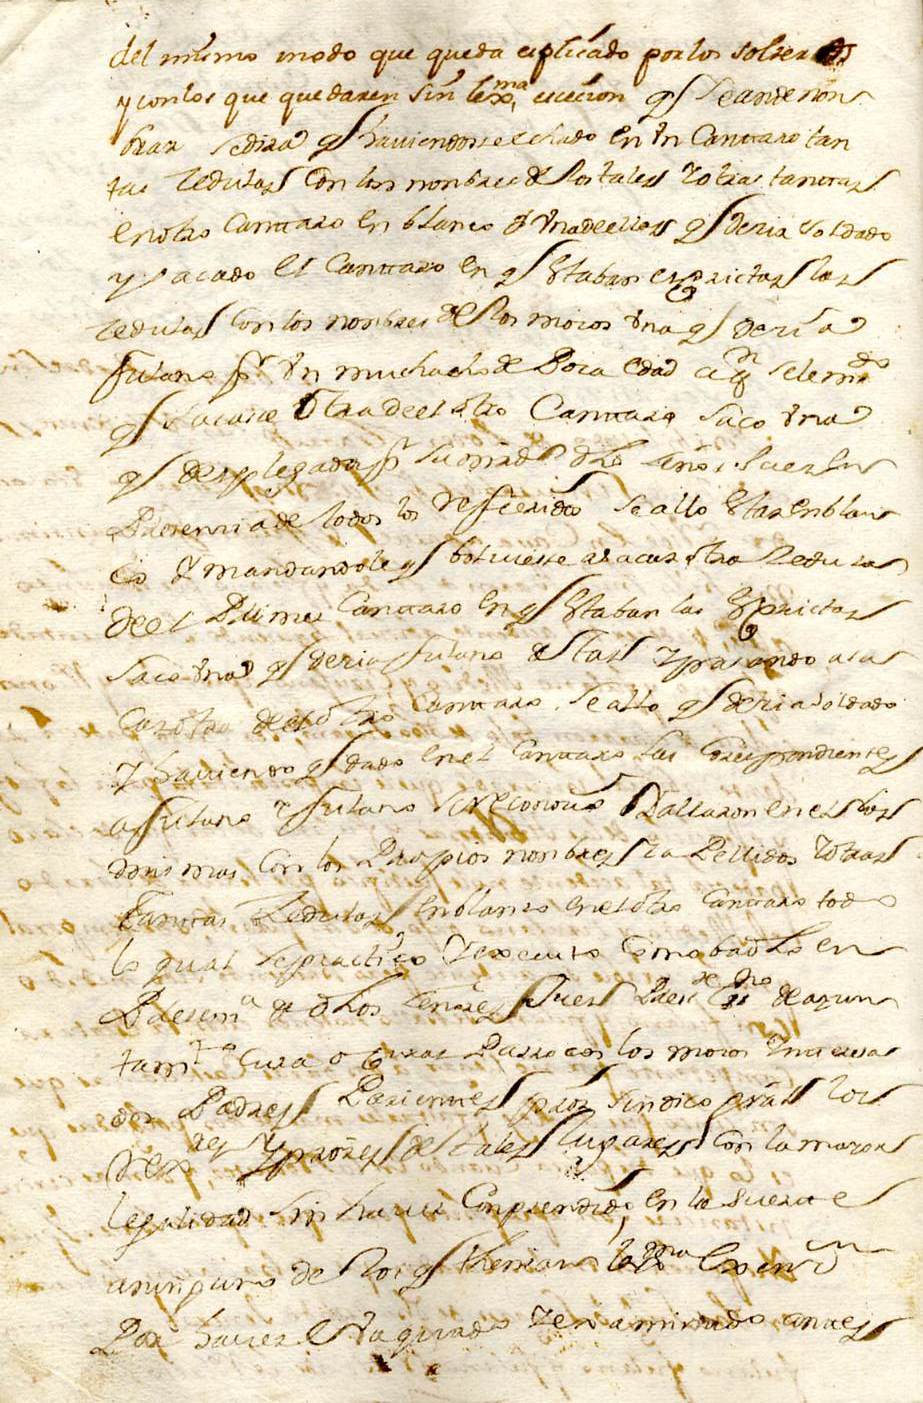 del mismo modo que queda esplicado por los solteros
y con los que quedaren sin lexma escecion qe se ande non
brar se dira qe haviendose echado en Vn Cantaro tan
tas Zedulas Con los nonbres de los tales Y otras tantas
en otro Cantaro en blanco y Vna de ellas qe dezia soldado
y sacado el Cantaro en qe estaban escrictas las
Zedulas Con los nonbres de los mozos Vna qe dezia
fulano pr Vn muchacho de Poca edad a qn se le mdo
qe sacase Otra de el otro Cantaro saco Vna
qe desplegada pr su mrd dho señor Juez en
Presencia de todos los Referidos se allo estar en blan
co Y mandandole qe bolviese a sacar otra Zedula
de el Primer Cantaro en qe estaban las escrictas
saco Vna qe dezia fulano de tal Y pasando a sa
car otra de el otro Cantaro se allo qe dezia soldado
Y haviendo qedado en el Cantaro las Correspondientes
a fulano Y fulano se Reconocio Y allaron en el los
mismas Con los Propios nonbres Y a Pellidos Y otras
tantas Zedulas en blanco en el otro Cantaro todo
lo qual se practico Y executo Como ba dho en
Presema de dhos señores Juez Presde Ssno de ayun
tamto Cura o Curas Parrocos los mozos Ynteresa
dos Padres Parientes pror sindico gral los
Rexres Y prores de tales lugares Con la mayor
legalidad sin haver Comprendido en la suerte
a ninguno de los qe thenian lexma Exenon
Por haverse Vaquado Y exsaminado antes